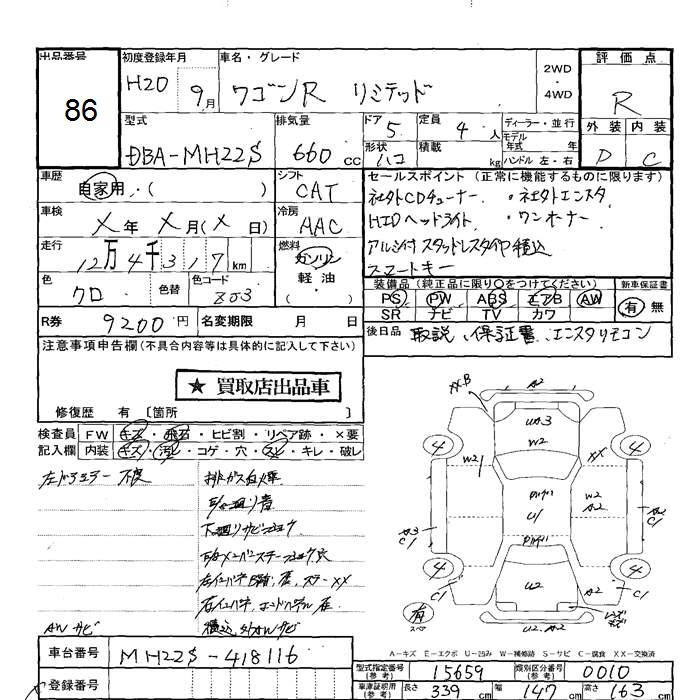 出品番号
86
初度登録年月
H20 9月
車名・グレード
ワゴンR リミテッド
2WD
・
4WD
評価点
R
外装 内装
D C
型式
DBA-MH22S
排気量
660 cc
ドア 5
定員 4人
形状 ハコ
積載 kg
ディーラー・並行
モデル年式 年式
ハンドル 左・右
車歴
自家用・( )
シフト
CAT
車検
X年 X月(X日)
冷房
AAC
走行
12万4千317km
燃料
ガソリン
軽油
( )
色
クロ
色替
色コード
Z03
R券 9200円
名変期限 月 日
セールスポイント(正常に機能するものに限ります)
社外CDチューナー ・社外エンスタ
HIDヘッドライト ・ワンオーナー
アルミ付スタッドレスタイヤ積込
スマートキー
装備品(純正品に限り○をつけてください)
新車保証書
PS PW ABS エアB AW
SR ナビ TV カワ
有 無
後日品 取説、保証書、エンスタリモコン
注意事項申告欄(不具合内容等は具体的に記入して下さい)
★ 買取店出品車
修復歴 有 〔箇所 〕
検査員記入欄
FW キズ・飛石・ヒビ割・リペア跡・X要
内装 キズ・汚レ・コゲ・穴・スレ・キレ・破レ
左ドアミラー 不良
排ガス白煙
下廻りサビ
AWサビ
積込分AWサビ
XX-B
A2
UA3
W2
4
4
XX
W2
U1
W2
A2
A3
C1
A2
C1
4
4
C1
U2
A2
C1
有
U2.A2
A-キズ E-エクボ U-凹み W-補修跡 S-サビ C-腐食 XX-交換済
車台番号
MH22S-418116
登録番号
型式指定番号(参考) 15659
類別区分番号(参考) 0010
車庫証明用(参考) 長さ 339 cm 幅 147 cm 高さ 163 cm